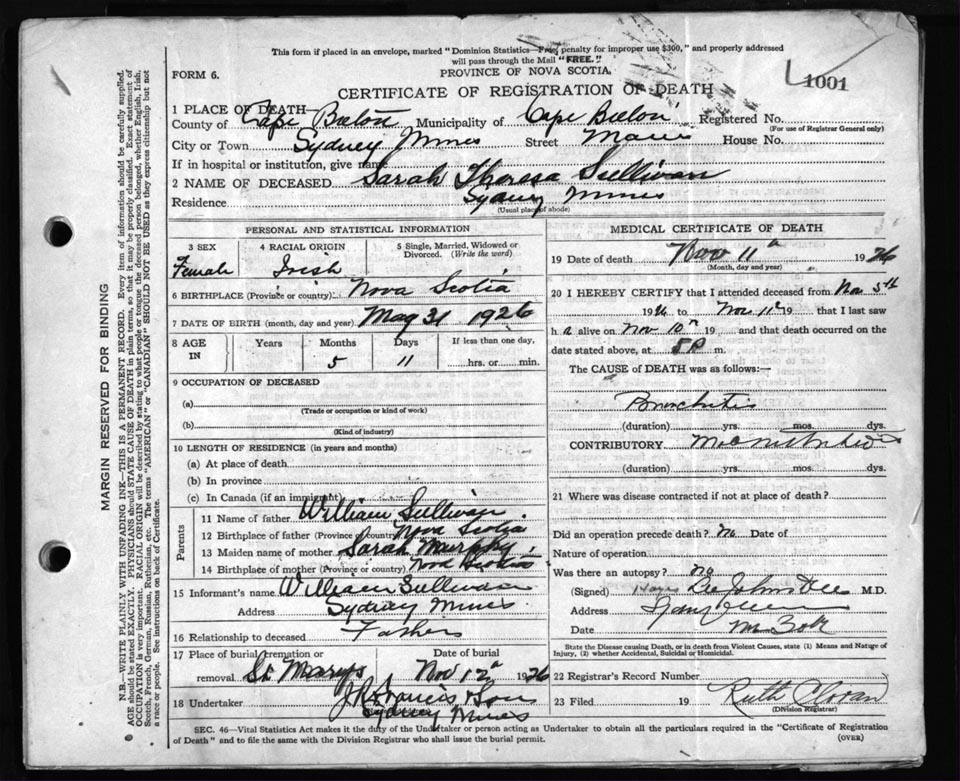 This form if placed in an envelope, marked "Dominion Statistics—Free, penalty for improper use $300," and properly addressed
will pass through the Mail "FREE."
FORM 6.
PROVINCE OF NOVA SCOTIA.
1001
CERTIFICATE OF REGISTRATION OF DEATH
1 PLACE OF DEATH
County of Cape Breton Municipality of Cape Breton Registered No.
(For use of Registrar General only)
City or Town Sydney Mines Street Main House No.
If in hospital or institution, give name
2 NAME OF DECEASED Sarah Theresa Sullivan
Residence Sydney Mines
(Usual place of abode)
PERSONAL AND STATISTICAL INFORMATION
3 SEX 4 RACIAL ORIGIN 5 Single, Married, Widowed or
Divorced. (Write the word)
Female Irish
6 BIRTHPLACE (Province or country) Nova Scotia
7 DATE OF BIRTH (month, day and year) May 31 1926
8 AGE IN Years Months Days If less than one day,
5 11 hrs. or min.
9 OCCUPATION OF DECEASED
(a)
(Trade or occupation or kind of work)
(b)
(Kind of industry)
10 LENGTH OF RESIDENCE (in years and months)
(a) At place of death
(b) In province
(c) In Canada (if an immigrant)
Parents
11 Name of father William Sullivan
12 Birthplace of father (Province or country) Nova Scotia
13 Maiden name of mother Sarah Murphy
14 Birthplace of mother (Province or country) Nova Scotia
15 Informant's name William Sullivan
Address Sydney Mines
16 Relationship to deceased Father
17 Place of burial, cremation or Date of burial
removal St Marys Nov 12 1926
18 Undertaker J R Francis & Son
Sydney Mines
MEDICAL CERTIFICATE OF DEATH
19 Date of death Nov 11 1926
(Month, day and year)
20 I HEREBY CERTIFY that I attended deceased from Nov 5th
1926 to Nov 11 19 that I last saw
h alive on Nov 10 19 and that death occurred on the
date stated above, at 5 P m.
The CAUSE of DEATH was as follows:—
Bronchitis
(duration) yrs. mos. dys.
CONTRIBUTORY
(duration) yrs. mos. dys.
21 Where was disease contracted if not at place of death?
Did an operation precede death? No Date of
Nature of operation
Was there an autopsy? no
(Signed) M.D.
Address
Date
State the Disease causing Death, or in death from Violent Causes, state (1) Means and Nature of
Injury, (2) whether Accidental, Suicidal or Homicidal.
22 Registrar's Record Number
23 Filed 19 Ruth
(Division Registrar)
SEC. 46—Vital Statistics Act makes it the duty of the Undertaker or person acting as Undertaker to obtain all the particulars required in the "Certificate of Registration
of Death" and to file the same with the Division Registrar who shall issue the burial permit. (OVER)
MARGIN RESERVED FOR BINDING
N.B.—WRITE PLAINLY WITH UNFADING INK—THIS IS A PERMANENT RECORD. Every item of information should be carefully supplied.
AGE should be stated EXACTLY. PHYSICIANS should STATE CAUSE OF DEATH in plain terms, so that it may be properly classified. Exact statement of
OCCUPATION is very important. RACIAL ORIGIN will be described by stating to what people or tongue the deceased person belonged, whether English, Irish,
Scotch, French, German, Russian, Ruthenian, etc. The terms "AMERICAN" or "CANADIAN" SHOULD NOT BE USED as they express citizenship but not
a race or people. See instructions on back of Certificate.